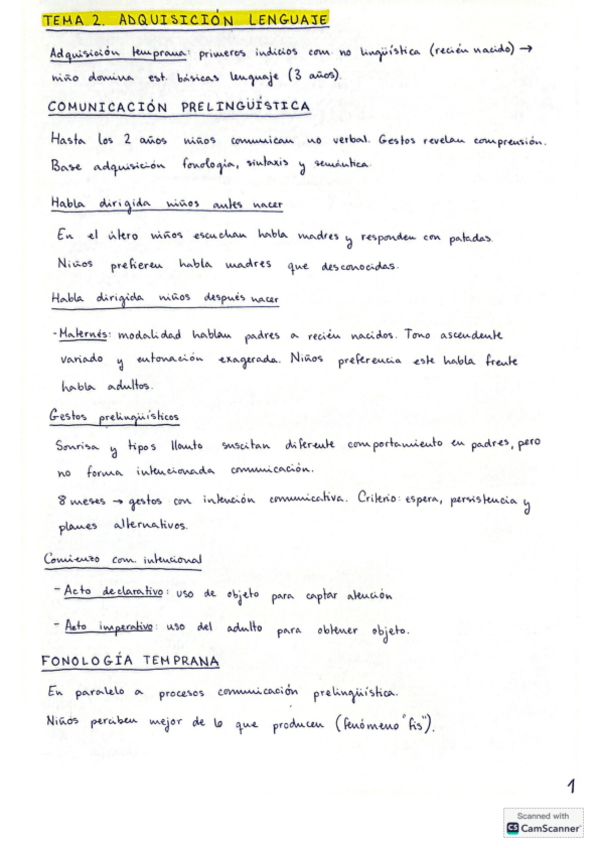 TEMA 2. ADQUISICIÓN LENGUAJE
Adquisición temprana: primeros indicios com. no lingüística (recién nacido) →
niño domina est. básicas lenguaje (3 años).
COMUNICACIÓN PRELINGÜÍSTICA
Hasta los 2 años niños comunican no verbal. Gestos revelan comprensión.
Base adquisición fonología, sintaxis y semántica.
Habla dirigida niños antes nacer
En el útero niños escuchan habla madres y responden con patadas.
Niños prefieren habla madres que desconocidas.
Habla dirigida niños después nacer
- Maternés: modalidad hablan padres a recién nacidos. Tono ascendente
variado y entonación exagerada. Niños preferencia este habla frente
habla adultos.
Gestos prelingüísticos
Sonrisa y tipos llanto suscitan diferente comportamiento en padres, pero
no forma intencionada comunicación.
8 meses → gestos con intención comunicativa. Criterio: espera, persistencia y
planes alternativos.
Comienzo com. intencional
- Acto declarativo: uso de objeto para captar atención
- Acto imperativo: uso del adulto para obtener objeto.
FONOLOGÍA TEMPRANA
En paralelo a procesos comunicación prelingüística.
Niños perciben mejor de lo que producen (fenómeno "fis").
1
Scanned with
CS CamScanner